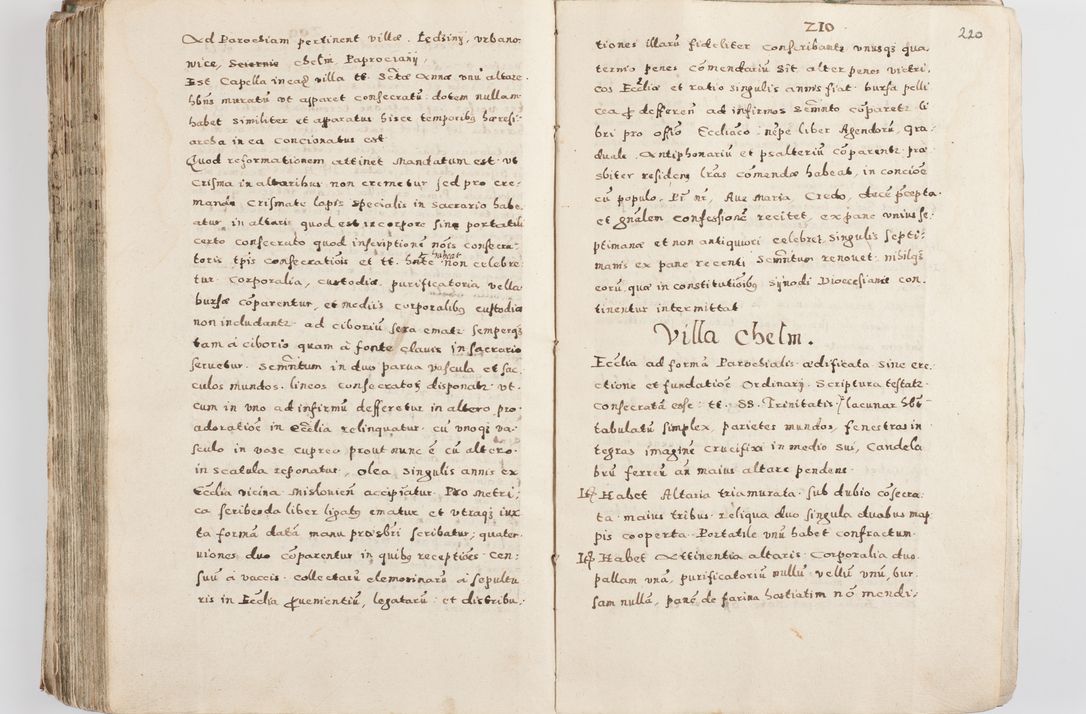 Ad Parochiam pertinent villæ. Lędziny, vrbano:
wice, Seiernie chelm, Paprociany,
Est Capella in eaq villa tt. Sctæ Annæ vnũ altare
hñs muratũ vt apparet consecratũ. dotem nullam
habet similiter et apparatus hisce temporibꝰ hæresi:
archa in ea concionatus est
Quod reformationem attinet Mandatum est. vt
Crisma in altaribus non cremetur sed pro cre:
mando Crismate lapis specialis in sacrario habe:
atur, in altaris quod est in corpore sine portatili
certo consecrato quod inscriptionẽ nõis consecra:
toris tpis consecratiõis et tt. habeat non celebre:
tur. Corporalia, custodia, purificatoria vella
bursæ cõparentur, et mediis corporalibꝰ custodia
non includantr ad ciboriũ sera ematr semperqꝫ
tam à ciborio quam à fonte clauis in sacrario
seruetur. Semĩntum in duo parua vascula et sac:
culos mundos. lineos consecratos disponatr vt.
cum in vno ad infirmũ defferetur in altero pro
adoratiõe in Ecclia relinquatur. cũ vnoqꝫ va:
sculo in vase cupreo prout nunc ẽ cũ altero.
in scatula reponatur, olea singulis annis ex
Ecclia vicina Mislouien accipiatur. Pro metri:
ca scribenda liber ligatꝰ ematur et vtraqꝫ iux
ta formã datã manu præsbri scribatur; quater:
niones duo cõparentur in quibꝰ receptiões cen:
suũ à vaccis. collectarũ elemosinarũ à sepultu
ris in Ecclia ꝓuenientiũ, legatarũ: et distribu:
210
220
tiones illarũ fideliter conscribantr vnusqꝫ qua
ternio penes cõmendariũ sit alter penes vietri:
cos Eccliæ et ratio singulis annis fiat. bursa pelli
cea ꝓ defferen ad infirmos Semĩnto cõparetr li
bri pro offõ Eccliaco nẽpe liber Agendorũ, gra:
duale Antiphonariũ et psalteriũ cõparentr præ
sbiter residens lras cõmendæ habeat, in conciõe
cũ populo. Pr nr, Aue Maria, Credo, decẽ pcepta.
et gñalem confessionẽ recitet, ex pane vnius se:
ptimanæ et non antiquiori celebret, singulis septi:
manis ex pane recenti Semĩntum renouet nihilqꝫ
eorũ quæ in constitutiõibꝰ Synodi Dioecesianæ con.
tinentur intermittat
Villa Chelm.
Ecclia ad formã Parochialis ædificata sine ere:
ctione et fundatiõe Ordinarij. Scriptura testatr
consecratã esse. tt. SS. Trinitatis. lacunar hñs
tabulatũ simplex, parietes mundos, fenestras in
tegras imaginẽ Crucifixi in medio sui, Candela
brũ ferreũ añ maius altare pendens.
It Habet Altaria tria murata. sub dubio cõsecra:
ta. maius tribus. reliqua duo singula duabus map
pis cooperta. Portatile vnũ habet confractum.
It Habet Attinentia altaris. Corporalia duo.
pallam vnã, purificatoriũ nullũ vellũ vnũ, bur:
sam nullã, panẽ de farina hostiatim nõ mendi: